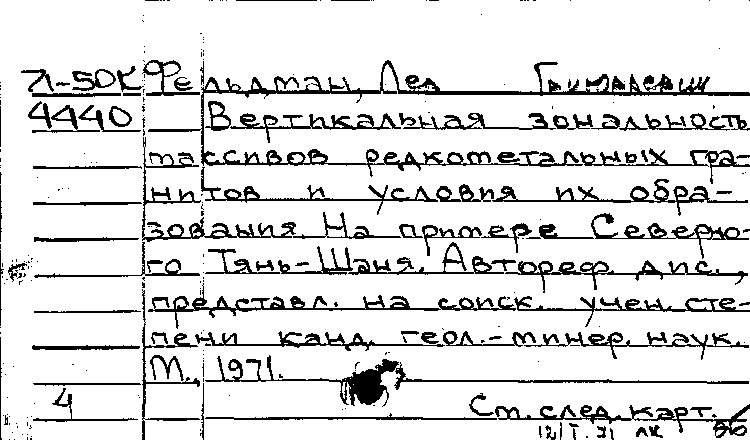 Л-50К Фельдман, Лев
4440 Вертикальная зональность
массивов редкометальных гра-
нитов и условия их обра-
зования. На примере Северно-
го Тянь-Шаня. Автореф. дис.,
представл. на соиск. учен. сте-
пени канд. геол.-минер. наук.
М., 1971.
4 См. след. карт.